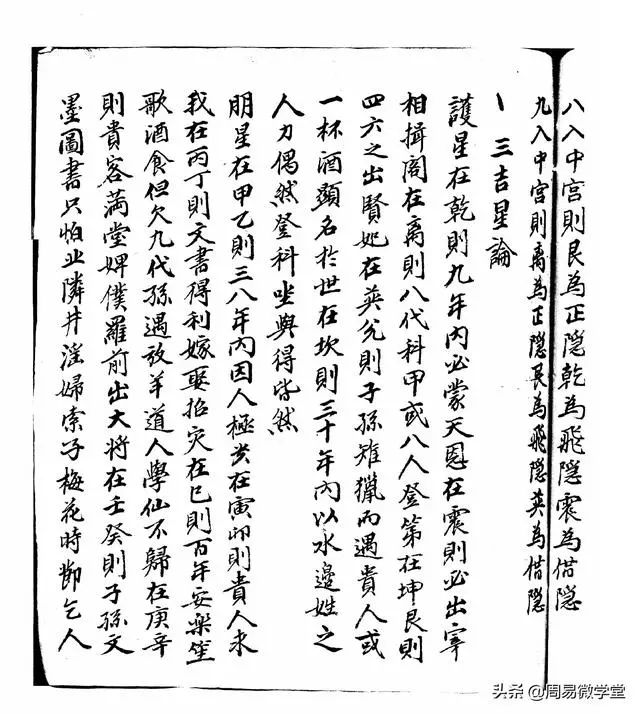 八入中宮則艮為正隐乾為飛隐震為借隐
九入中宮則离為正隐艮為飛隐英為借隐
丶三吉星論
護星在乾則九年內必蒙天恩在震則必出宰
相揖阁在离則八代科甲或八人登第在坤艮則
四六之出賢妣在英兊則子孫雉獵而遇貴人或
一杯酒顕名於世在坎則三十年內以水邊姓之
人力偶然登科坐與得皆然
明星在甲乙則三八年內因人極出在寅卯則貴人求
我在丙丁則文書得利嫁娶招灾在巳則百年安楽笙
歌酒食但欠九代孫遇放羊道人學仙不歸在庚辛
則貴客满堂婢僕羅前出大将在壬癸則子孫文
墨圖書只怕业隣井淫婦索子梅花時節乞人
头条 @周易微学堂